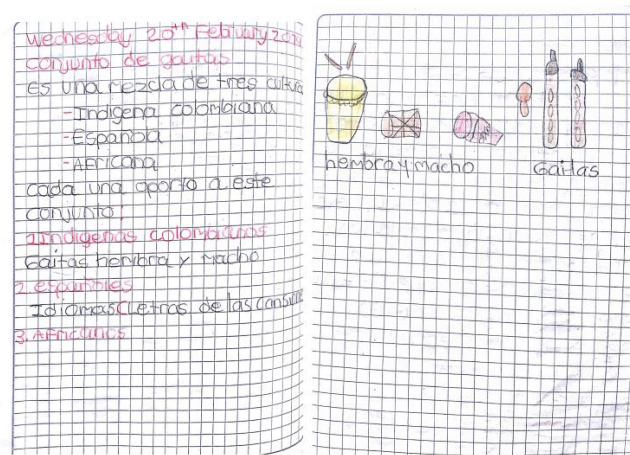 Wednesday 20th February
conjunto de gaitas
Es una mezcla de tres
-Indigena colombiana
-Española
-Africana
cada una aporto a este
conjunto:
1.Indigenas colombianos
Gaitas hembra y macho
2.españoles
Idiomas(Letras de las
3.Africanos
hembra y macho
Gaitas